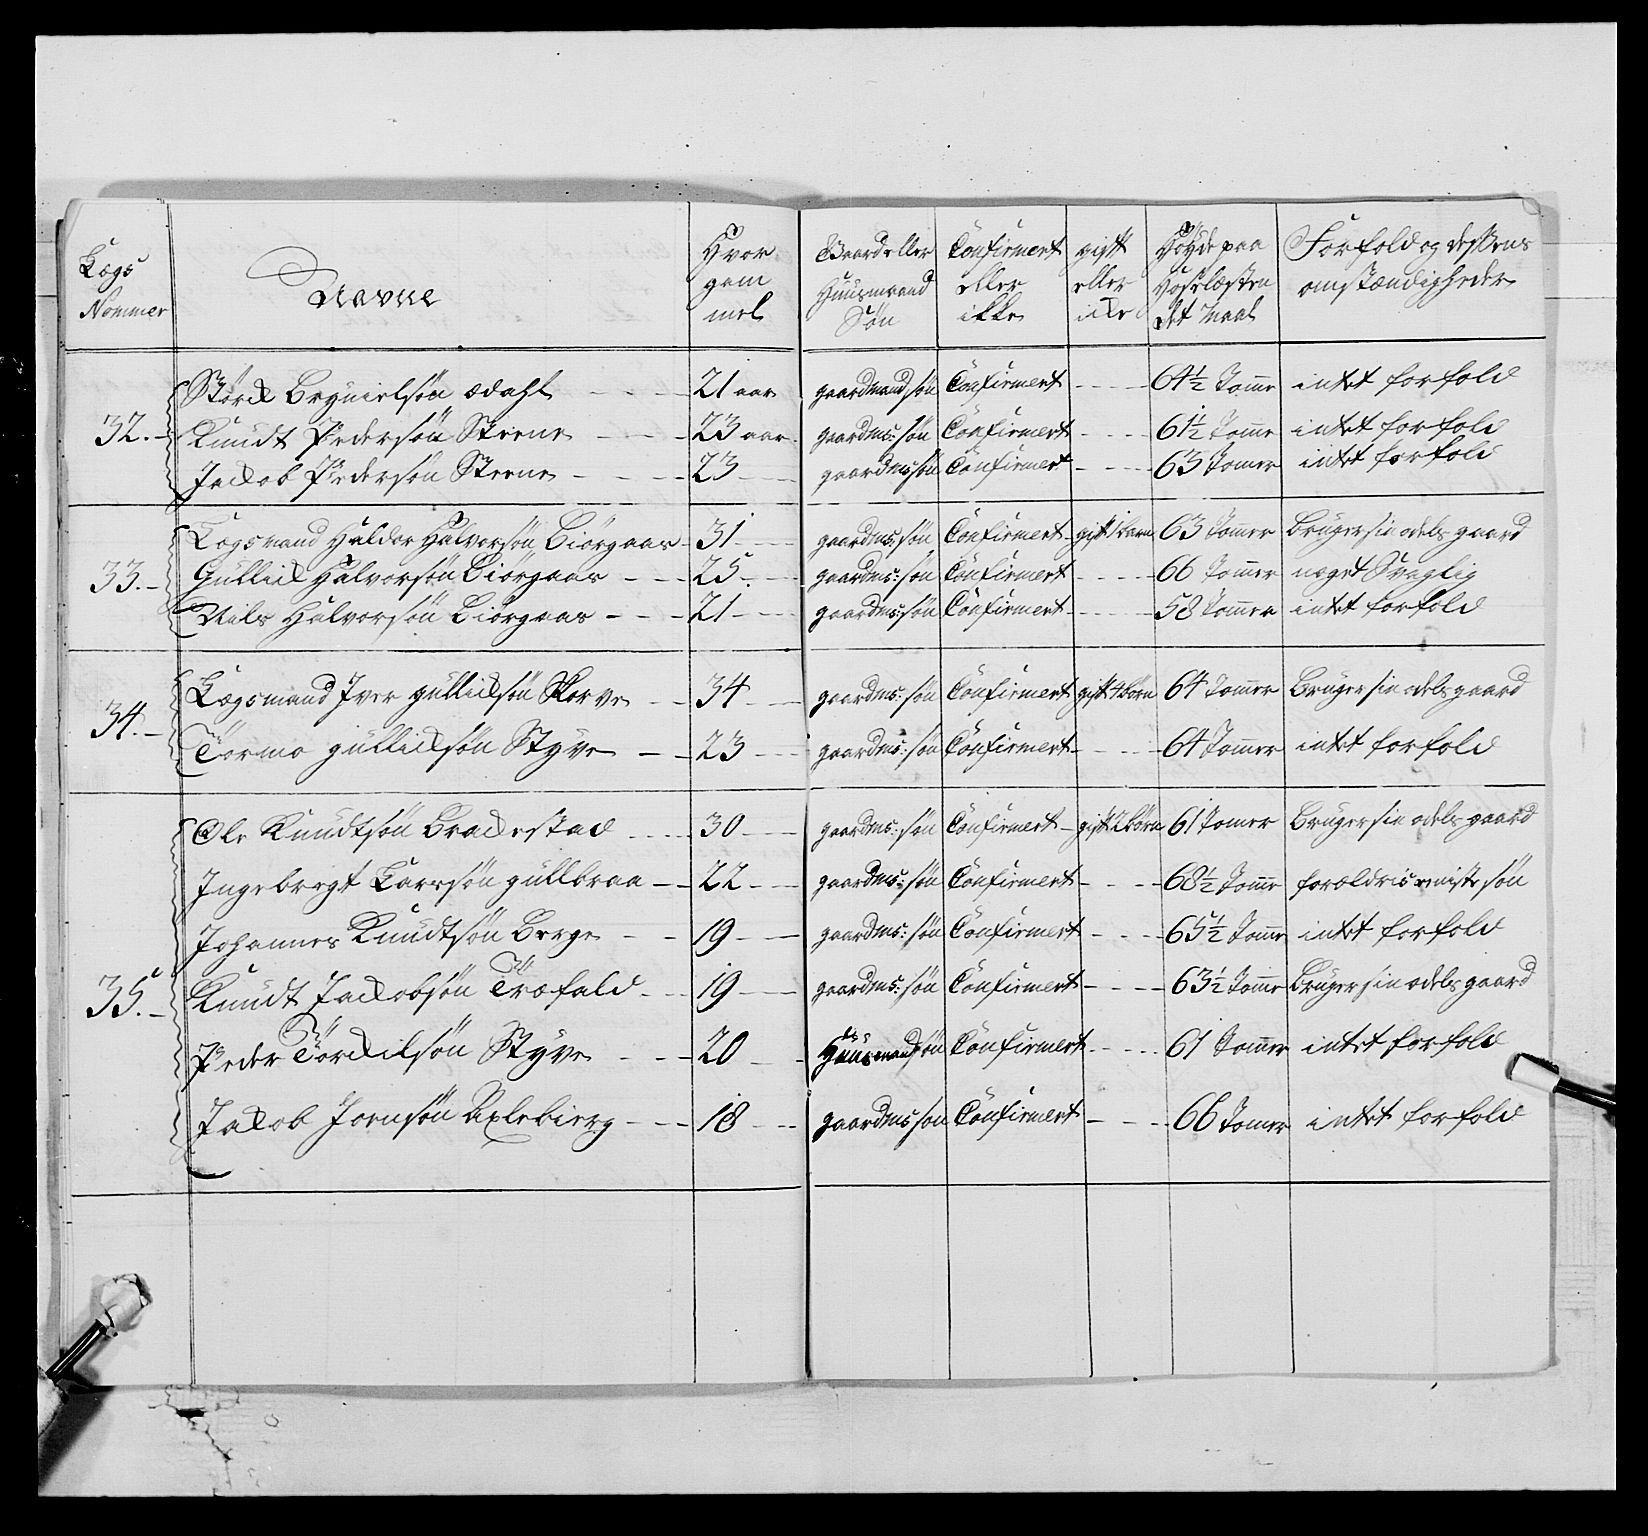 Lægs Nommer | Navne | Hvor gam mel | Gaard eller Huusmand Søn | Confirmert eller ikke | gift eller icke | Høyde paa Hoselæsten det maal | Forfald og desSens omstændigheder
32. Størck Brynielsøn ædahl - - - 21 aar gaardmand søn Confirmert - - - 64½ Tomme intet forfald
Knudt Pedersøn Steene - - - 23 aar gaardms: søn Confirmert - - - 61½ Tomme intet forfald
Jackob Pedersøn Steene - - - 23 - gaardms søn Confirmert - - - 63 Tomer intet forfald
33. Lægsmand Haldor Halvorsøn Biørgaas - 31 - gaardms: søn Confirmert gift 1 barn 63 Tommer Bruger sin odels gaard
Gullick Halvorsøn Biørgaas - - - 25. - gaardms: søn Confirmert - - - 66 Tommer noget Svaglig
Niels Halvorsøn Biørgaas - - - 21 - gaardms: søn Confirmert - - - 58 Tommer intet forfald
34. Lægsmand Iver gullicksøn Skorve - - 34 - gaardms: søn Confirmert gift 4 børn 64 Tommer Bruger sin odels gaard
Tormo gullicksøn Styve - - 23 - gaardms: søn Confirmert - - - 64 Tommer intet forfald
35. Ole Knudtsøn Brackestad - - - 30 - gaardms: søn Confirmert - gift 2 børn 61 Tomer Bruger sin odels gaard
Ingebregt Larssøn gullbraa - - 22 - gaardms: søn Confirmert - - - 68½ Tomme forældris eniste søn
Johannes Knudtsøn Berge - - 19 - gaardms: søn Confirmert - - - 65½ Tomme intet forfald
Knudt Jackobsøn Træfald - - - 19 - gaardms: søn Confirmert - - - 63½ Tomme Bruger sin odels gaard
Peder Törckilsøn Styve - - - 20 - Huusmand søn Confirmert - - - 61 Tommer intet forfald
Jackob Joensøn Axlebierg - - - 18 - gaardms søn Confirmert - - - 66 Tomer intet forfald